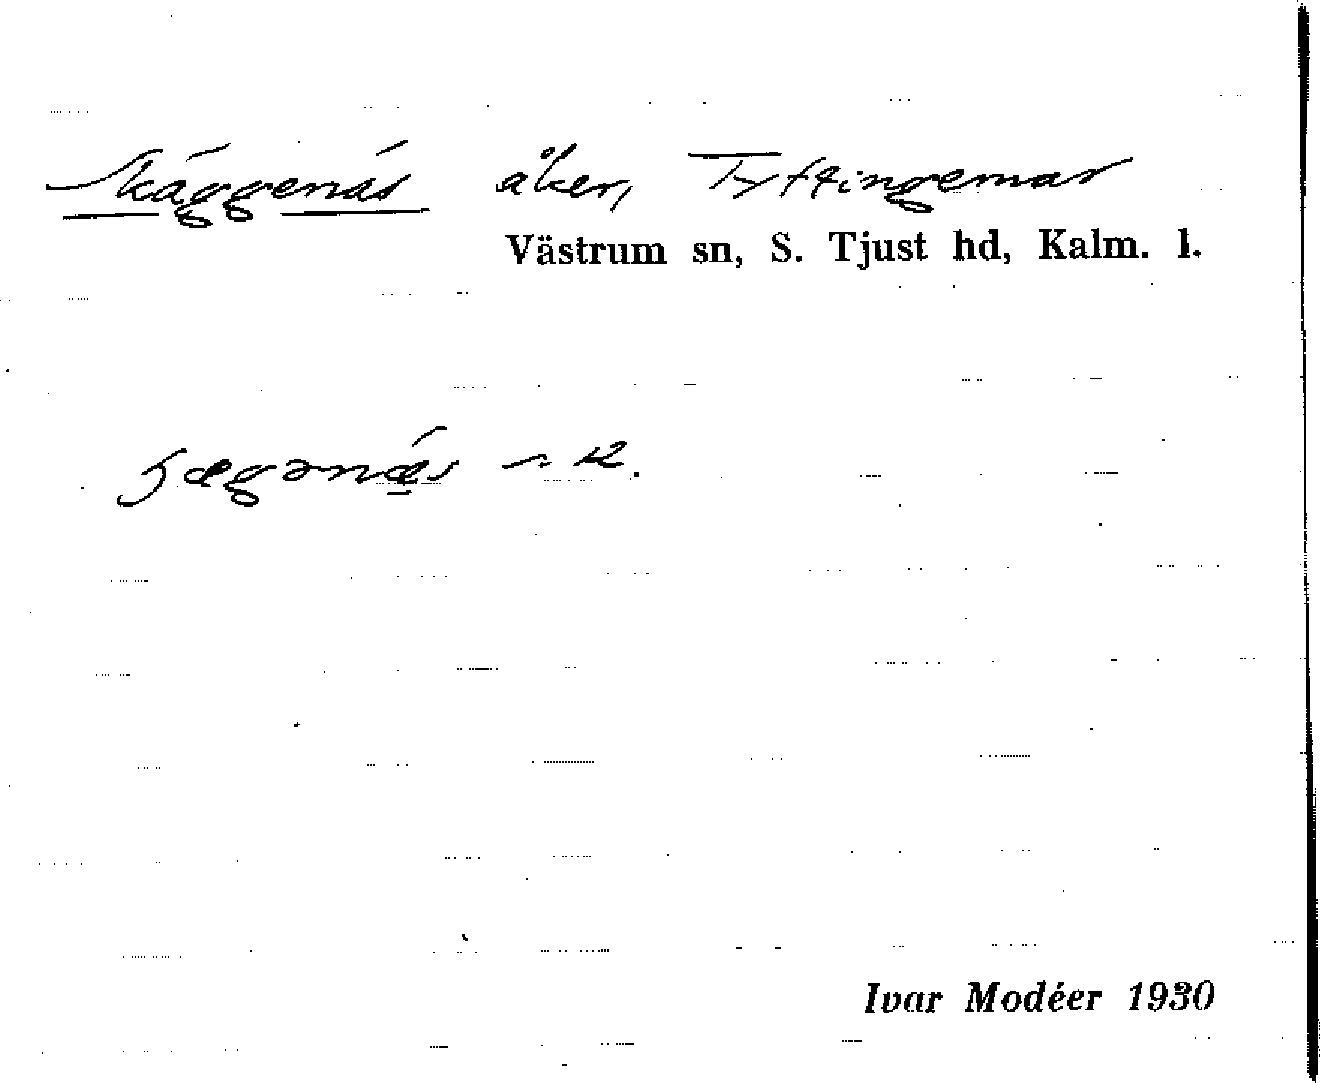 Skäggenäs åker, Tyttingemar
Västrum sn, S. Tjust hd, Kalm. l.
ʒægənæs
Ivar Modéer 1930